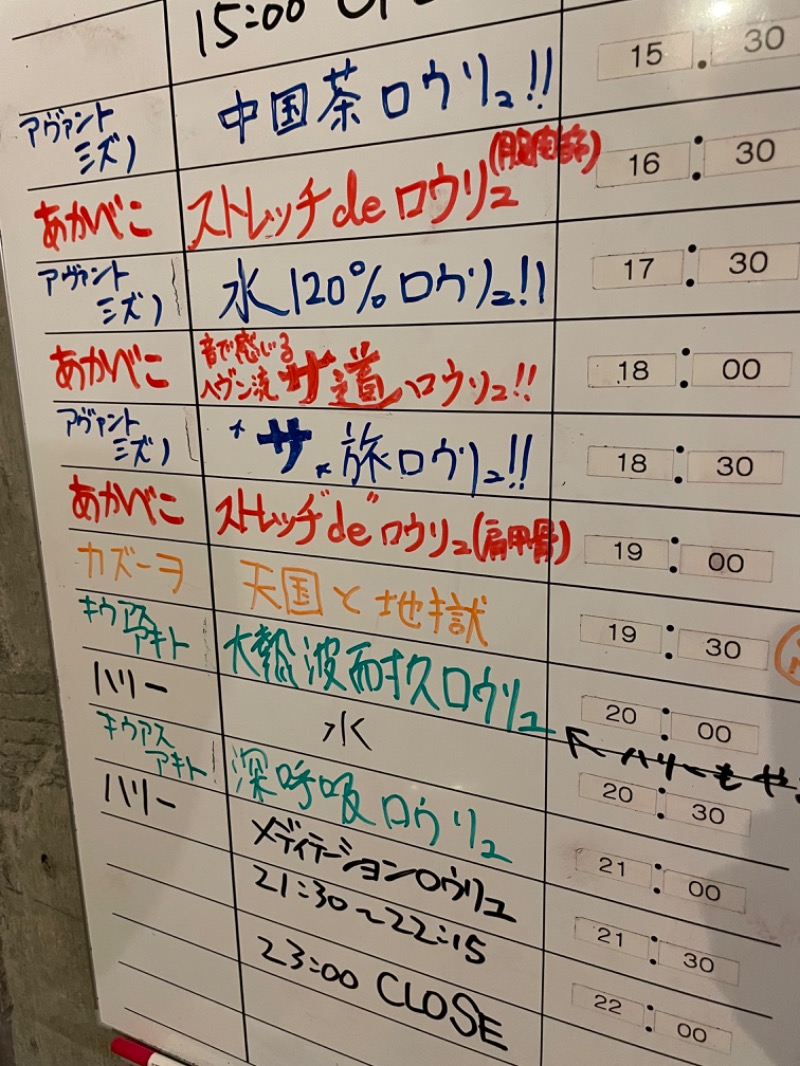 15:00
15 30
アヴァント
ミズノ
中国茶ロウリュ!!
16:30
あかべこ
ストレッチdeロウリュ
17:30
アヴァント
ミズノ
水120%ロウリュ!!
18:00
あかべこ
音で感じる
ヘヴン流 サ道 ロウリュ!!
18:30
アヴァント
ミズノ
サ旅ロウリュ!!
19:00
あかべこ
ストレッチ"de"ロウリュ(肩甲骨)
19:30
カズーヲ
天国と地獄
20:00
キウアス
アキト
大熱波耐久ロウリュ
←ハリーもや
20:30
ハリー
水
21:00
キウアス
アキト
深呼吸ロウリュ
21:30
ハリー
メディテーションロウリュ
21:30〜22:15
22:00
23:00 CLOSE